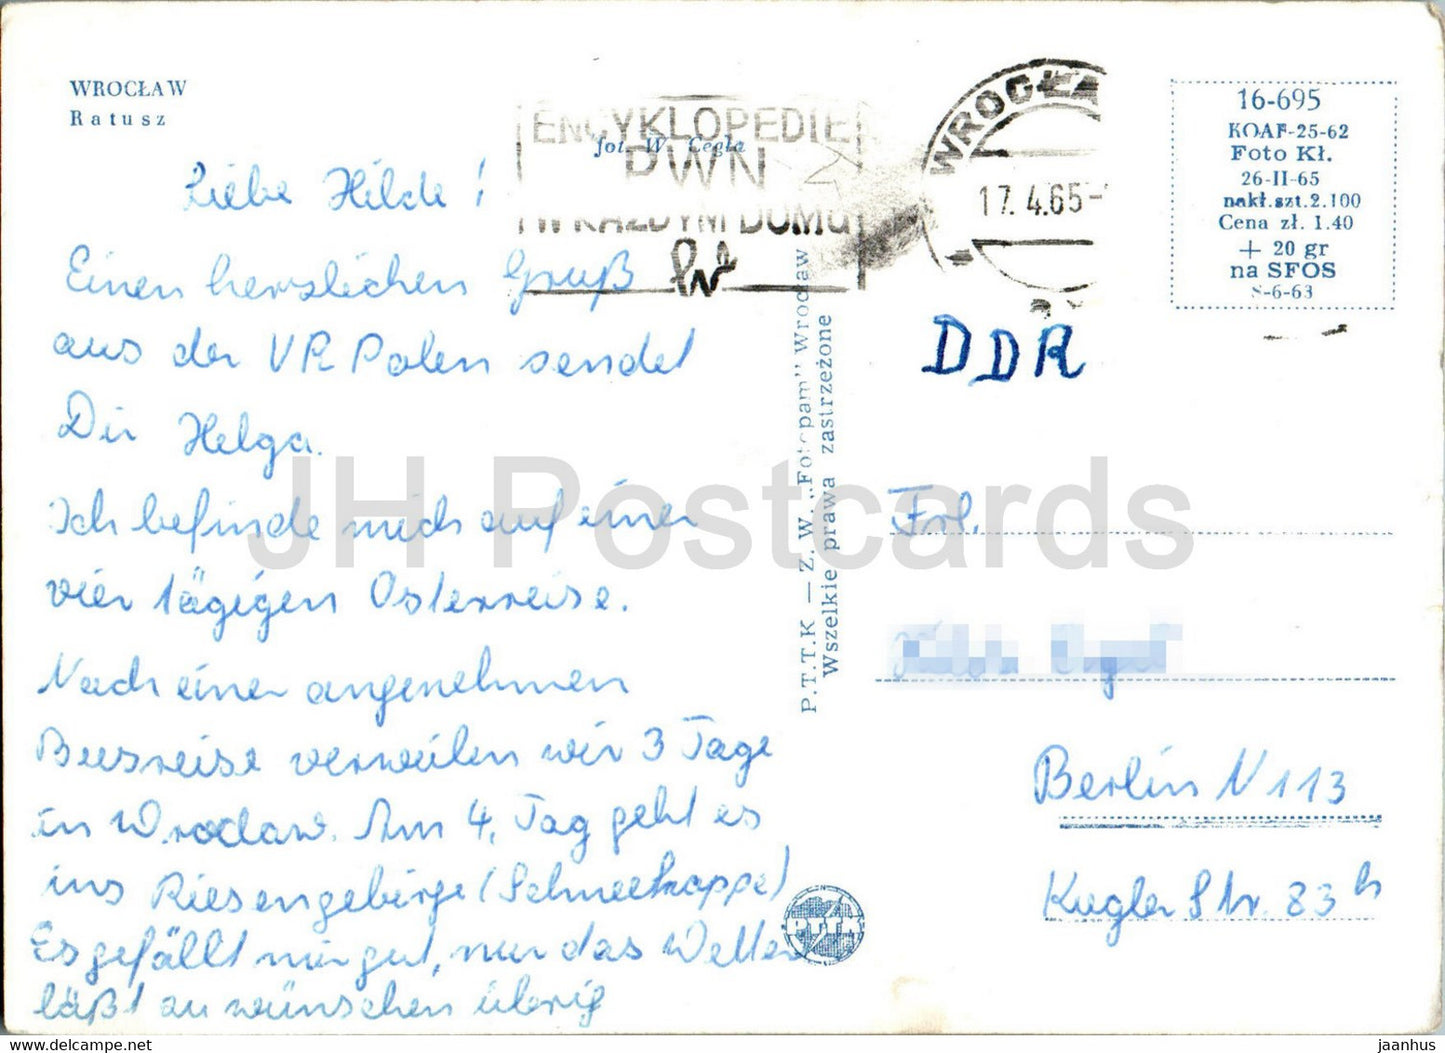 WROCŁAW
Ratusz
ENCYKLOPEDIE
fot. W. Cegła
PWN
W KAŻDYM DOMU
WROCŁA
17.4.65-
16-695
KOAF-25-62
Foto Kł.
26-II-65
nakł.szt.2.100
Cena zł. 1.40
+ 20 gr
na SFOS
S-6-63
Liebe Hilde!
Einen herzlichen Gruß
aus der VR Polen sendet
Dir Helga.
Ich befinde mich auf einer
vier tägigen Osterreise.
Nach einer angenehmen
Busreise verweilen wir 3 Tage
in Wroclaw. Am 4. Tag geht es
ins Riesengebirge (Schneekappe)
Es gefällt mir gut, nur das Wetter
läßt zu wünschen übrig
P.T.T.K — Z. W. „Fotopam" Wrocław
Wszelkie prawa zastrzeżone
PTTK
DDR
Frl.
Berlin N 113
Kugler Str. 83
JH Postcards
jaanhus www.delcampe.net